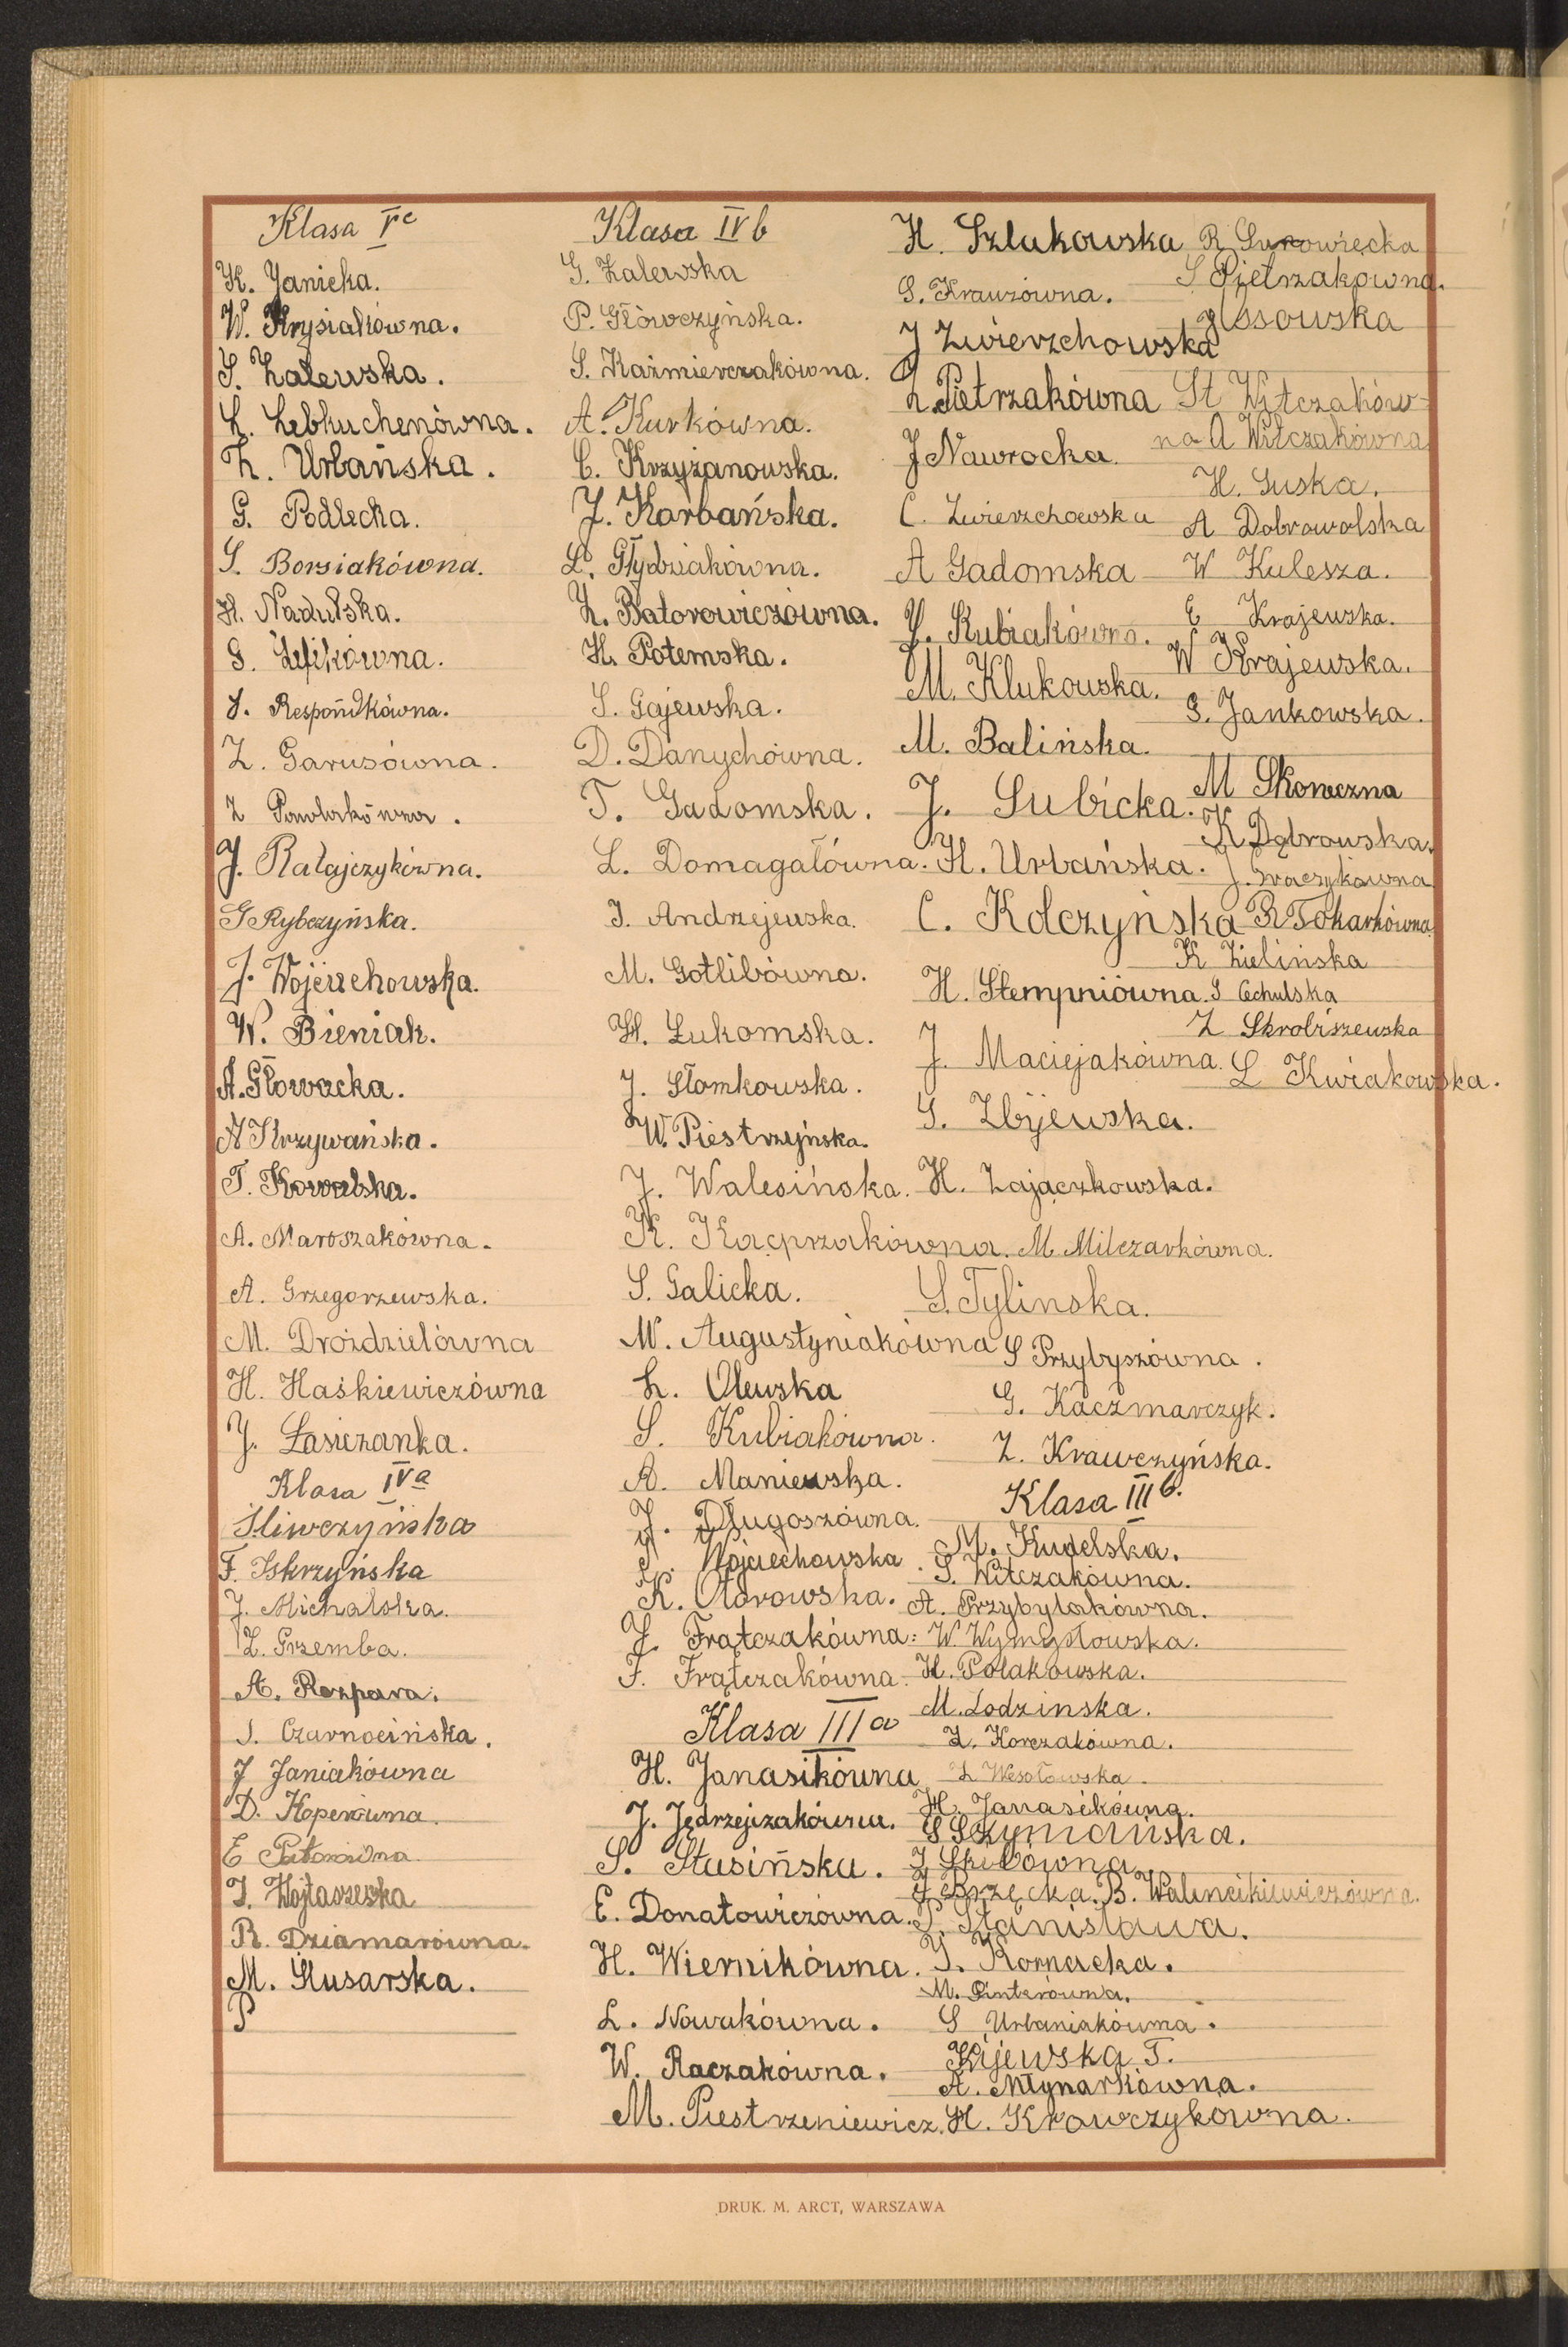 Klasa Vc
K. Janicka.
W. Krysiakówna.
S. Zalewska.
L. Lebkuchenówna.
Z. Urbańska.
G. Podlecka.
S. Borsiakówna.
H. Nadulska.
G. Lefikówna.
J. Respondkówna.
Z. Garusówna.
Z Pawlakówna.
J. Ratajczykówna.
G Rybczyńska.
J. Wojciechowska.
W. Bieniak.
A. Głowacka.
A Krzywańska.
T. Kowalska.
A. Maroszakówna.
A. Grzegorzewska.
M. Droździelówna
H. Haśkiewiczówna
J. Łasiczanka.
Klasa IVa
Śliwczyńska
F. Iskrzyńska
J. Michalska.
Z. Grzemba.
A. Rozpara.
J. Czarnocińska.
J Janiakówna
D. Koperówna.
E
J. Wojtaszewska
R. Dziamarówna.
M. Ślusarska.
P
Klasa IVb
G. Zalewska
P. Główczyńska.
S. Kaźmierczakówna.
A. Kurkówna.
C. Krzyżanowska.
J. Karbańska.
L. Głydziakówna.
Z. Batorowiczówna.
H. Potemska.
S. Gajewska.
D. Danychówna.
T. Gadomska.
L. Domagałówna.
J. Andrzejewska.
M. Gotlibówna.
H. Łukomska.
J. Słomkowska.
W. Piestrzyńska.
J. Walesińska.
K. Kacprzakówna.
S. Galicka.
M. Augustyniakówna
L. Olewska
S. Kubiakówna.
A. Maniewska.
J. Długoszówna.
S. Wojciechowska.
K. Otorowska.
J. Frątczakówna.
F. Frątczakówna.
Klasa IIIa
H. Janasikówna
J. Jędrzejczakówna.
S. Stusińska.
E. Donatowiczówna.
H. Wiernikówna.
L. Nowakówna.
W. Raczakówna.
M. Piestrzeniewicz.
H. Szlukowska
G. Krauzówna.
J Zwierzchowska
Z. Pietrzakówna
J Nawrocka.
C. Zwierzchowska
A Gadomska
J. Kubiakówna.
M. Klukowska.
M. Balińska.
J. Subicka.
H. Urbańska.
C. Kolczyńska
H. Stempniówna.
J. Maciejakówna.
S. Zbijewska.
H. Zajączkowska.
M. Milczarkówna.
S. Tylinska.
S Przybyszówna.
G. Kaczmarczyk.
Z. Krawczyńska.
Klasa IIIb.
M. Kudelska.
S. Witczakówna.
A. Przybylakówna.
W. Wymysłowska.
H. Polakowska.
M. Lodzinska.
Z. Korczakówna.
Z Wesołowska.
H. Janasikówna.
S Szymańska.
J
J Brzęcka. B. Walencikiewiczówna.
P. Stanisława.
J. Kornacka.
M. Pinterówna.
S Urbaniakówna.
Kijewska T.
A. Młynarkówna.
H. Krawczykówna.
R Surowiecka
S Pietrzakówna.
J Ossowska
St Witczaków-
na A Witczakówna
H. Guska.
A Dobrowolska
W Kulesza.
E Krajewska.
W Krajewska.
G. Jankowska.
M Skoneczna
K Dąbrowska.
J. Graczykówna
R Tokarkówna
K Zielińska
S Cechulska
Z Skrobiszewska
L Kwiakowska.
DRUK. M. ARCT, WARSZAWA